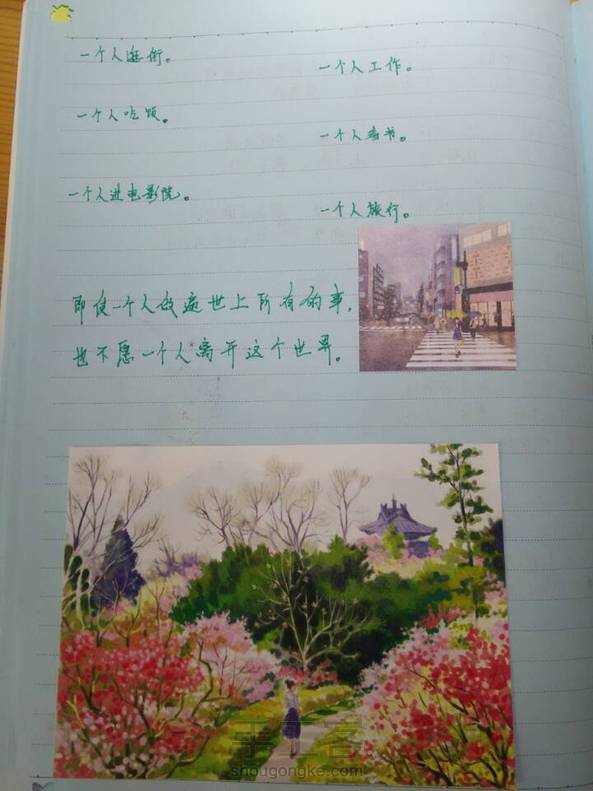 一个人逛街。
一个人工作。
一个人吃饭。
一个人看书。
一个人进电影院。
一个人旅行。
即使一个人做遍世上所有的事,
也不愿一个人离开这个世界。
手工客
shougongke.com